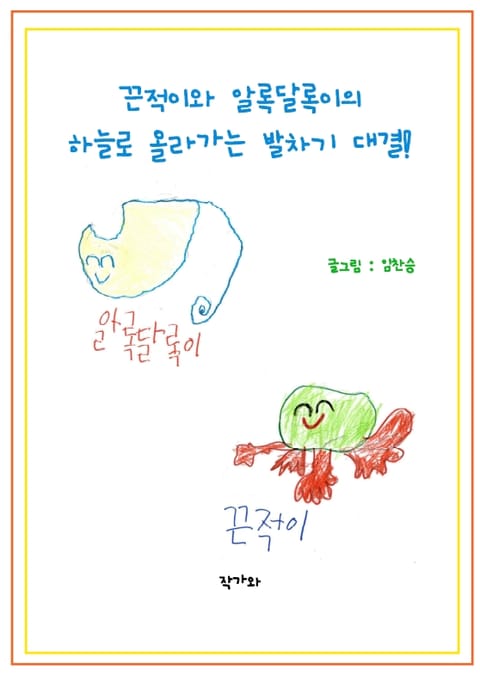 끈적이와 알록달록이의
하늘로 올라가는 발차기 대결!
글그림 : 임찬승
알록달록이
끈적이
작가와